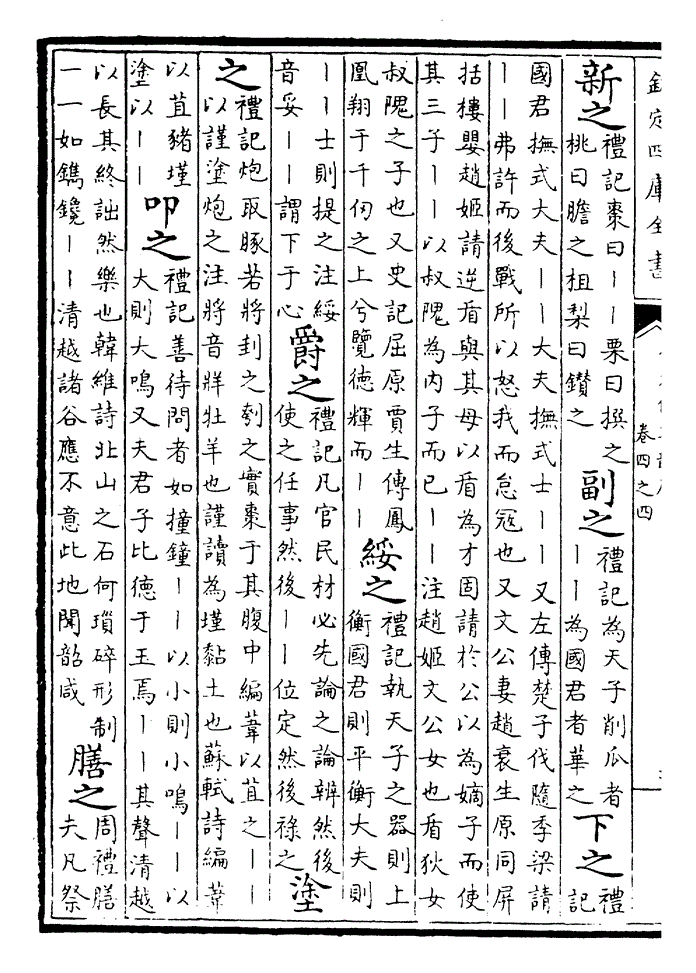 欽定四庫全書
卷四之四
新之
禮記棗曰||栗曰撰之
桃曰膽之柤梨曰鑽之
副之
禮記為天子削瓜者
||為國君者華之
下之
禮
記
國君撫式大夫||大夫撫式士||又左傳楚子伐隨季梁請
||弗許而後戰所以怒我而怠冦也又文公妻趙衰生原同屏
括樓嬰趙姬請逆盾與其母以盾為才固請於公以為嫡子而使
其三子||以叔隗為内子而已||注趙姬文公女也盾狄女
叔隗之子也又史記屈原賈生傳鳳
凰翔于千仞之上兮覽德輝而||
綏之
禮記執天子之器則上
衡國君則平衡大夫則
||士則提之注綏
音妥||謂下于心
爵之
禮記凡官民材必先論之論辨然後
使之任事然後||位定然後祿之
塗
之
禮記炮取豚若將刲之刳之實棗于其腹中編葦以苴之||
以謹塗炮之注將音牂牡羊也謹讀為墐黏土也蘇軾詩編葦
以苴豬墐
塗以||
叩之
禮記善待問者如撞鐘||以小則小鳴||以
大則大鳴又夫君子比德于玉焉||其聲清越
以長其終詘然樂也韓維詩北山之石何瑣碎形制
一一如鐫鑱||清越諸谷應不意此地聞韶咸
膳之
周禮膳
夫凡祭